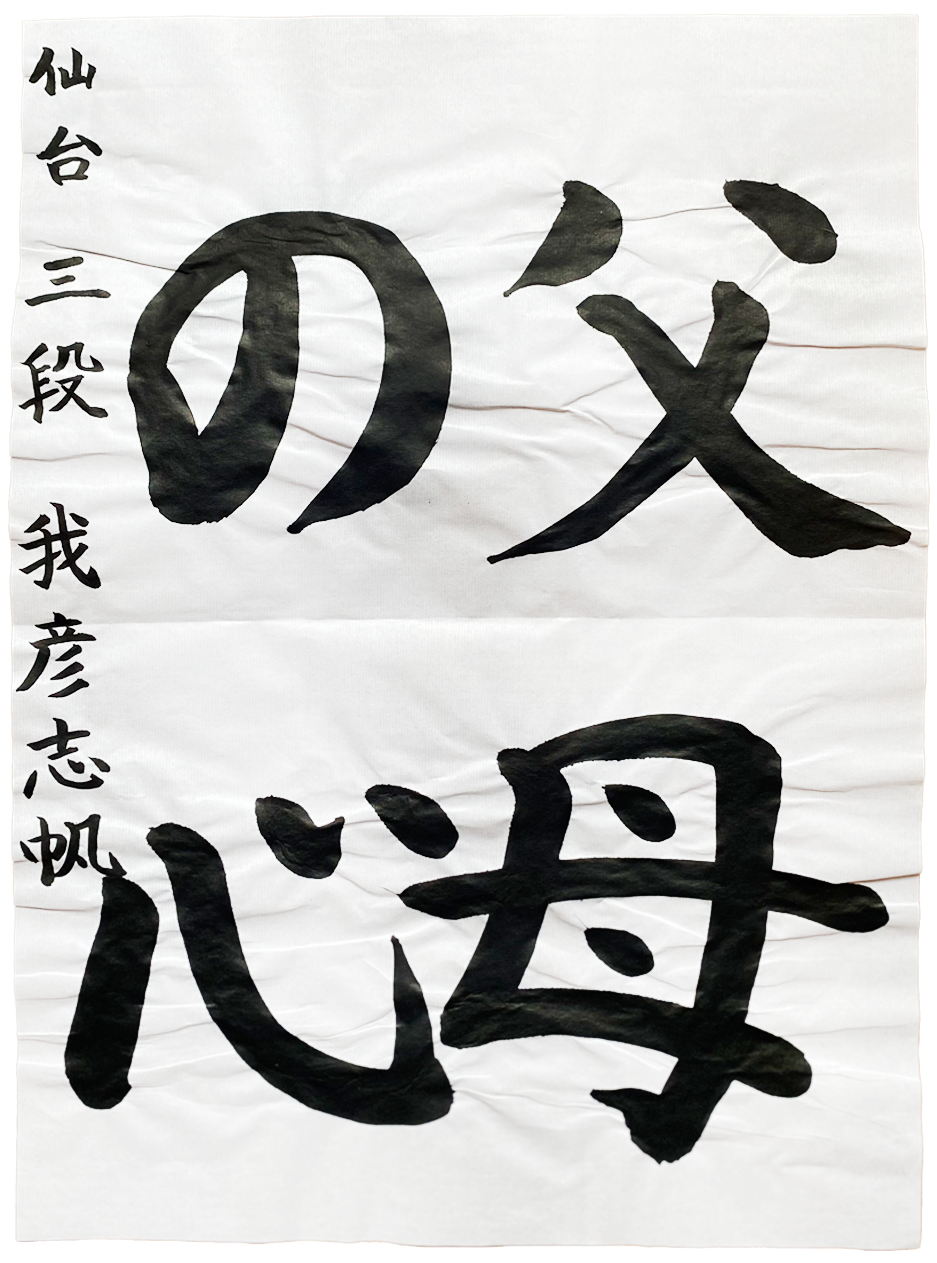 父母
の心
仙台 三段 我彦志帆